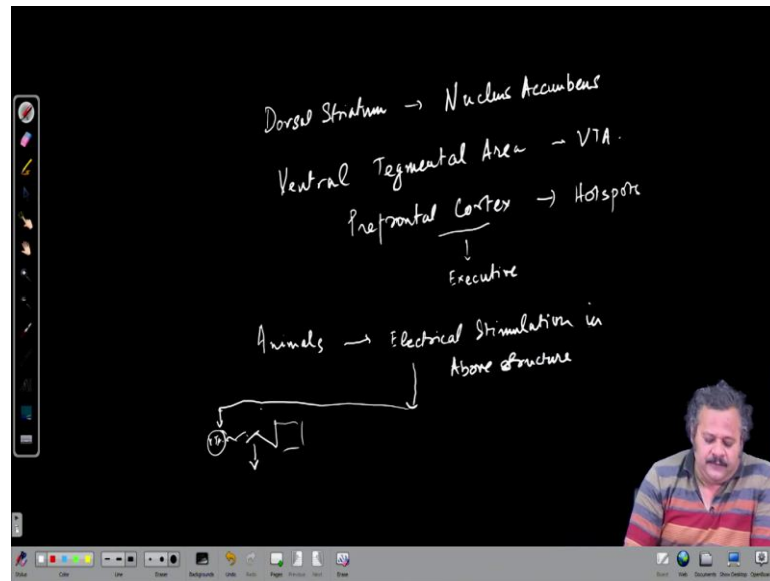 Dorsal Striatum → Nucleus Accumbens
Ventral Tegmental Area - VTA.
Prefrontal Cortex → Hotspots
↓
Executive
Animals → Electrical Stimulation in
Above structure
VTA
Status
Color
Line
Eraser
Backgrounds
Undo
Redo
Pages
Previous
Next
Erase
Board
Web
Documents
Show Desktop